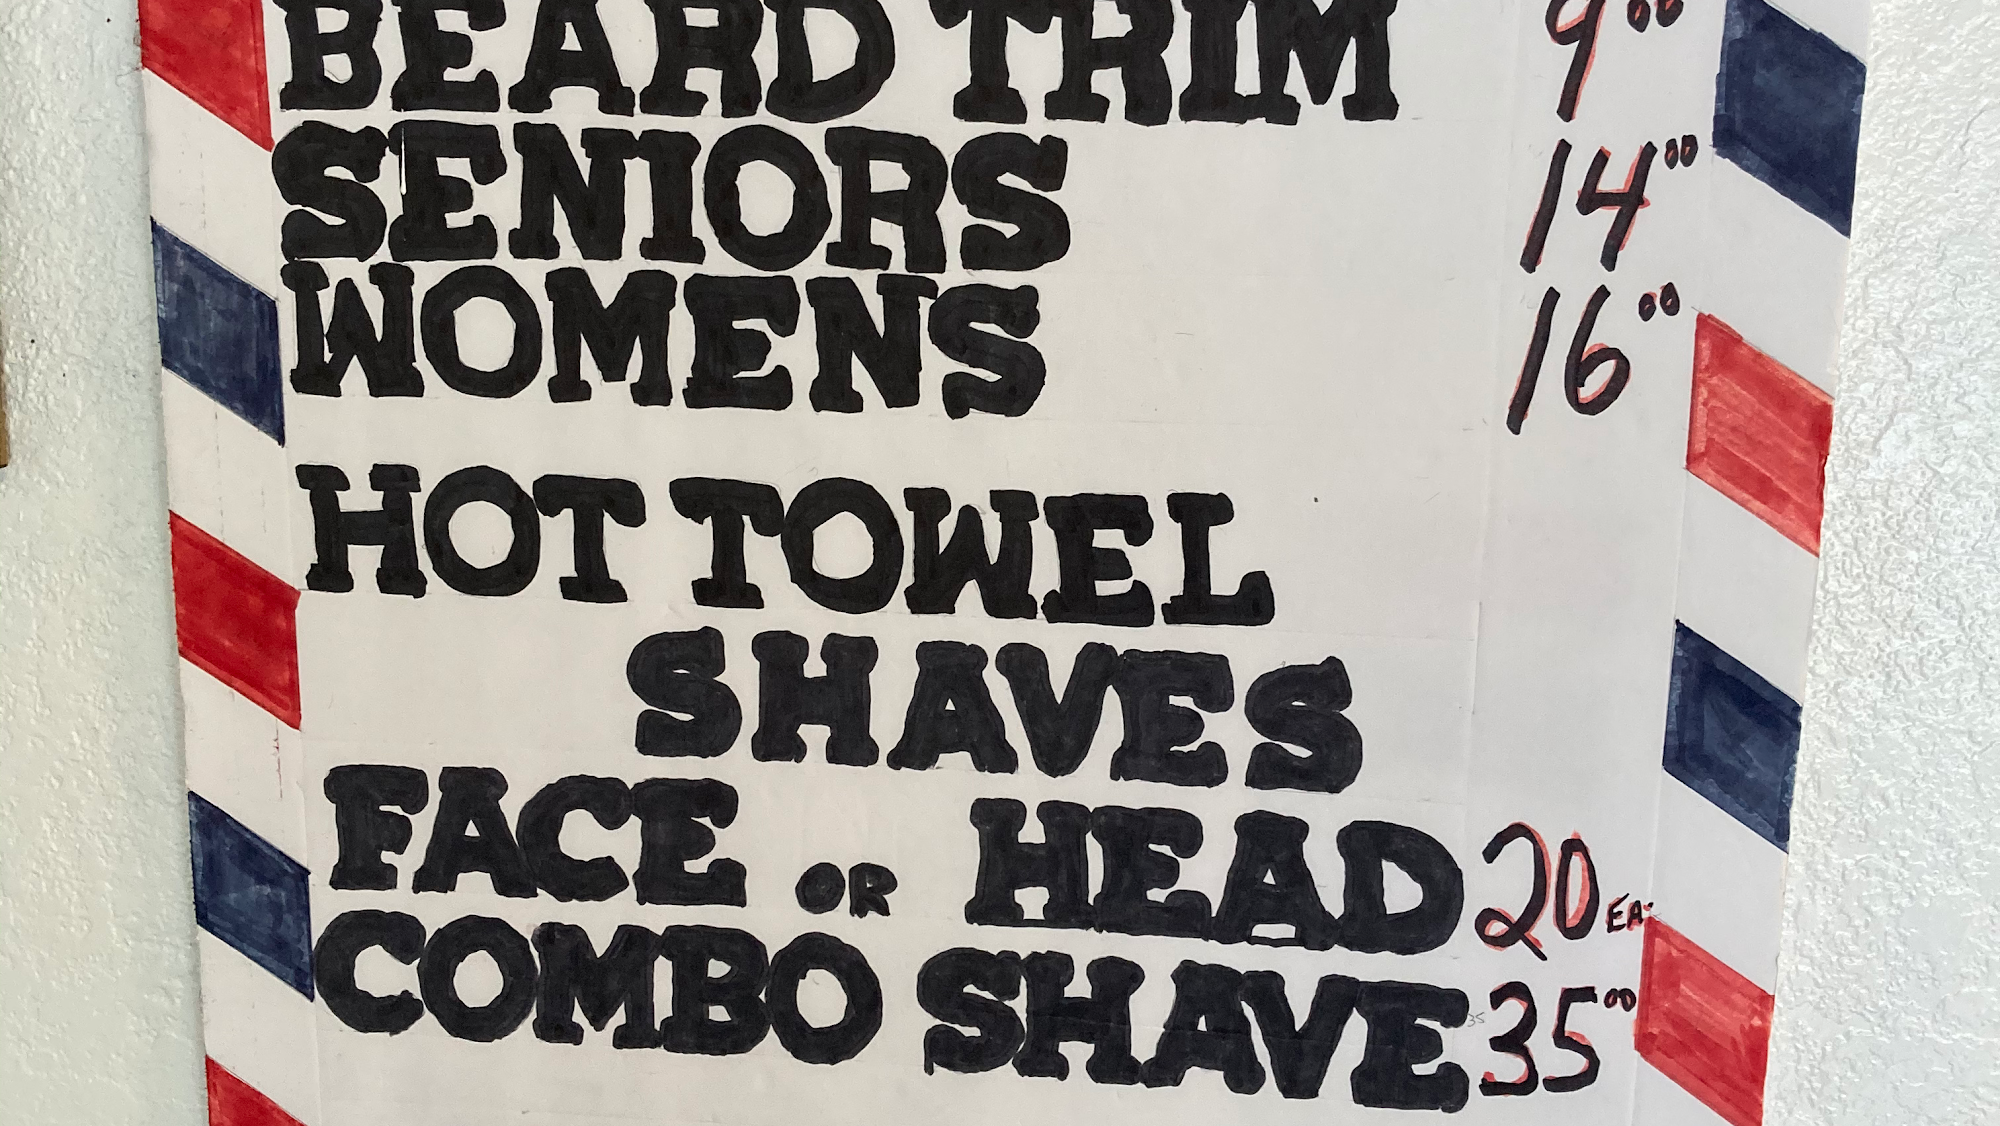 BEARD TRIM 9⁰⁰
SENIORS 14⁰⁰
WOMENS 16⁰⁰
HOT TOWEL
SHAVES
FACE OR HEAD 20 EA.
COMBO SHAVE 35 35⁰⁰